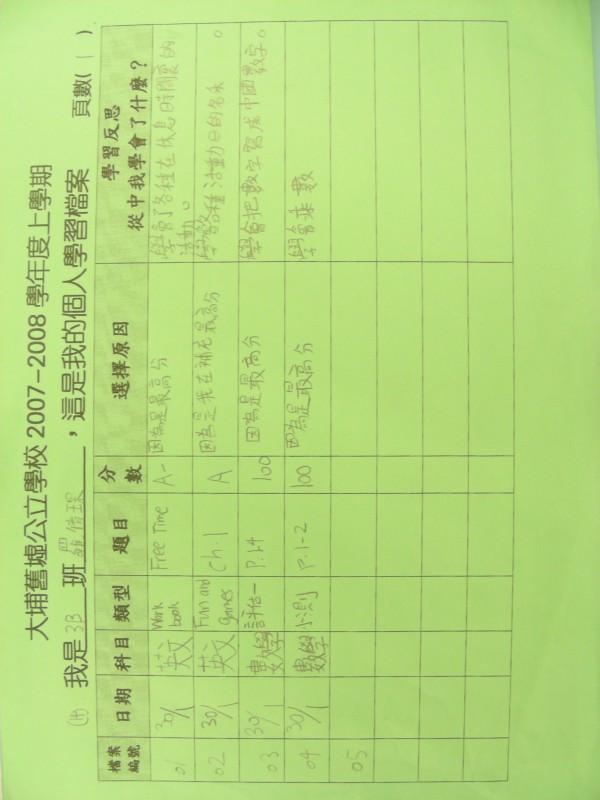 大埔舊墟公立學校 2007-2008 學年度上學期
我是 3B 班 ，這是我的個人學習檔案 頁數( 1 )
檔案編號 日期 科目 類型 題目 分數 選擇原因 學習反思 從中我學會了什麼？
01 30/1 英文 Work book Free Time A- 因為是最高分 學會了各種在休息時間裏的活動。
02 30/1 英文 Fun and Games ch.1 A 因為是我在補充最高分 學會各種活動日的名永。
03 30/1 數學 評估一 P.14 100 因為是最高分 學會把數字寫成中國數字。
04 30/1 數學 小測 P.1-2 100 因為是最高分 學會乘數
05